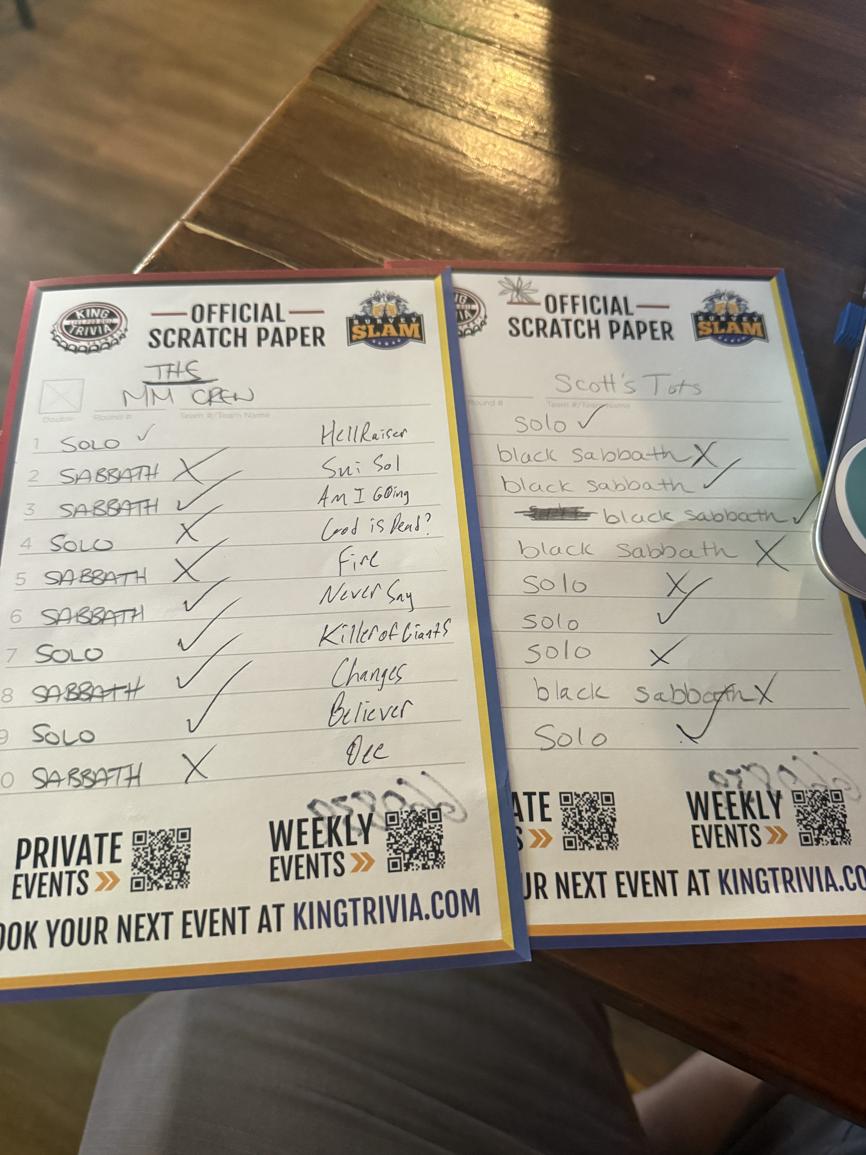 KING
TRIVIA
OFFICIAL
SCRATCH PAPER
SLAM
THE
MM CREW
Double
Round #
Team #/Team Name
1 SOLO ✓ HellRaiser
2 SABBATH X Sui Sol
3 SABBATH ✓ Am I GOing
4 SOLO X God is Dead?
5 SABBATH X Fire
6 SABBATH ✓ Never Say
7 SOLO ✓ Killer of Giants
8 SABBATH ✓ Changes
9 SOLO ✓ Believer
0 SABBATH X Dee
PRIVATE
EVENTS
WEEKLY
EVENTS
OOK YOUR NEXT EVENT AT KINGTRIVIA.COM
OFFICIAL
SCRATCH PAPER
SLAM
Scott's Tots
Round #
Team #/Team Name
Solo ✓
black sabbath X
black sabbath ✓
black sabbath ✓
black sabbath X
Solo X
Solo ✓
Solo X
black sabbath X
Solo ✓
ATE
S
WEEKLY
EVENTS
UR NEXT EVENT AT KINGTRIVIA.CO